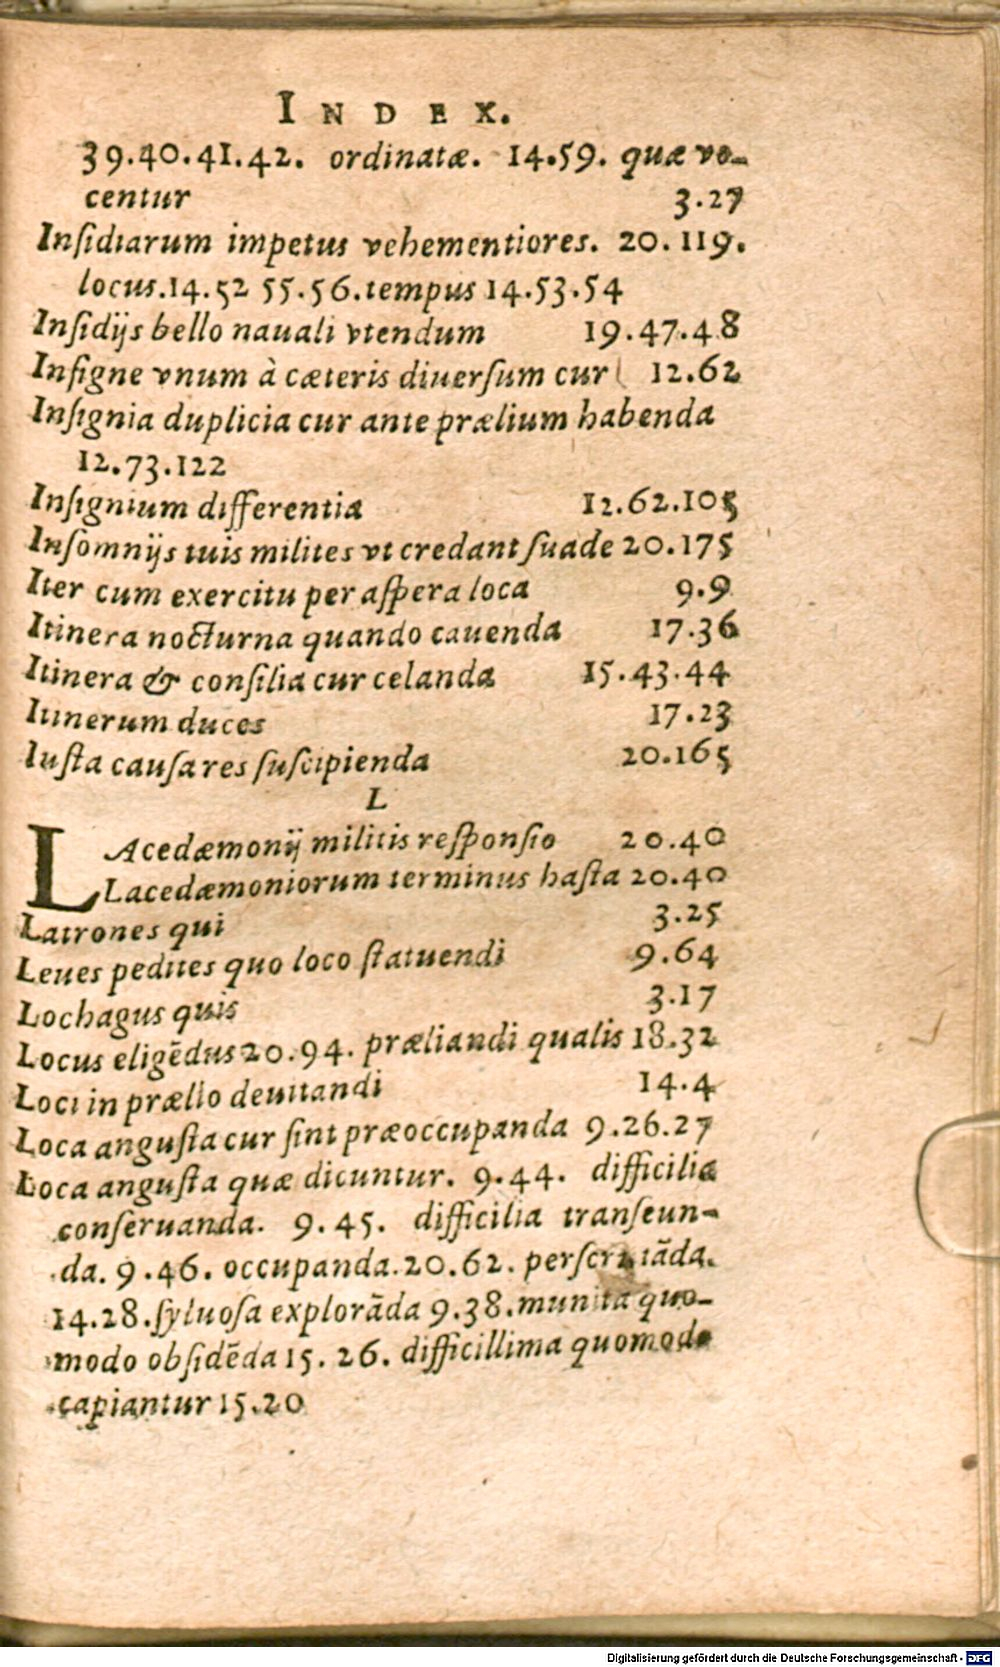 INDEX.
39.40.41.42. ordinatæ. 14.59. quæ vo-
centur 3.27
Inſidiarum impetus vehementiores. 20.119.
locus.14.52 55.56.tempus 14.53.54
Inſidijs bello nauali vtendum 19.47.48
Inſigne vnum à cæteris diuerſum cur 12.62
Inſignia duplicia cur ante prælium habenda
12.73.122
Inſignium differentia 12.62.105
Inſomnijs tuis milites vt credant ſuade 20.175
Iter cum exercitu per aſpera loca 9.9
Itinera nocturna quando cauenda 17.36
Itinera & conſilia cur celanda 15.43.44
Itinerum duces 17.23
Iuſta cauſa res ſuſcipienda 20.165
L
LAcedæmonij militis reſponſio 20.40
Lacedæmoniorum terminus haſta 20.40
Latrones qui 3.25
Leues pedites quo loco ſtatuendi 9.64
Lochagus quis 3.17
Locus eligēdus 20.94. præliandi qualis 18.32
Loci in prælio deuitandi 14.4
Loca anguſta cur ſint præoccupanda 9.26.27
Loca anguſta quæ dicuntur. 9.44. difficilia
conſeruanda. 9.45. difficilia tranſeun-
da. 9.46. occupanda.20.62. perscrutāda.
14.28.ſyluoſa explorāda 9.38.munita quo-
modo obſidēda 15. 26. difficillima quomodo
capiantur 15.20
Digitalisierung gefördert durch die Deutsche Forschungsgemeinschaft - DFG